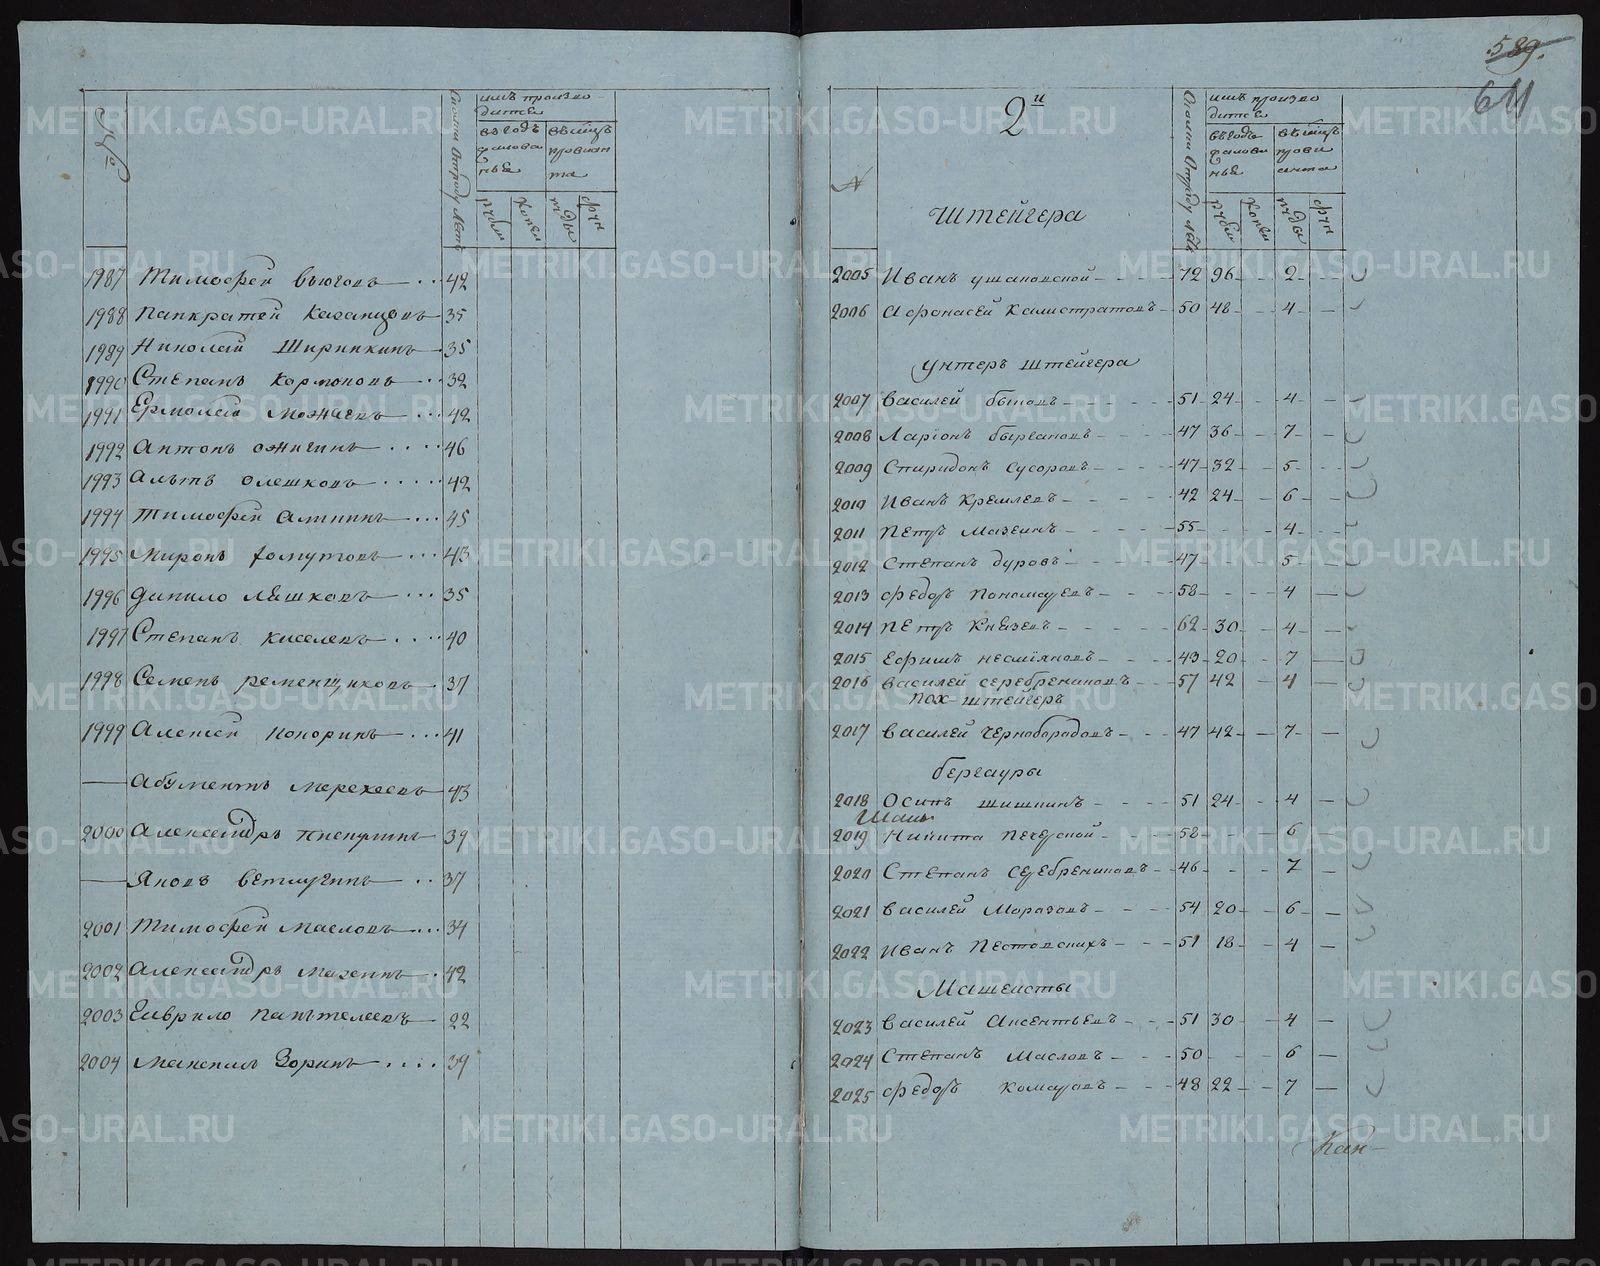 №
Сколко Отроду Летъ
имъ произво
дитса
въ годъ
жалова
нье
въ мсцъ
провиан
та
рубли
копеи
пуды
фун
1987 Тимофей Вьюговъ 42
1988 Панкратей Казанцовъ 35
1989 Николай Ширинкинъ 35
1990 Степанъ 32
1991 Ермолай Можаевъ 42
1992 Антонъ Ожигинъ 46
1993 Олешковъ 42
1994 Тимофей Аликинъ 45
1995 Миронъ Хомутовъ 43
1996 Данило Мешковъ 35
1997 Степанъ Киселевъ 40
1998 Семенъ Ременщиковъ 37
1999 Алексей Кокоринъ 41
— 43
2000 Александръ 39
— Яковъ Ветлугинъ 37
2001 Тимофей Масловъ 34
2002 Александръ Мазеинъ 42
2003 Гаврило Пантелеевъ 22
2004 Зоринъ 39
589.
611
2й
№
Штейгера
Сколко Отроду Летъ
имъ произво
дитса
въ годъ
жалова
нье
въ мсцъ
прови
анта
рубли
копеи
пуды
фун
2005 Иванъ Ушаковской 72 96 2
2006 Афонасей Калистратовъ 50 48 4
Унтеръ штейгера
2007 Василей Быковъ 51 24 4
2008 Ларионъ 47 36 7
2009 Спиридонъ Сусоровъ 47 32 5
2010 Иванъ Кремлевъ 42 24 6
2011 Петръ Мазеинъ 55 4
2012 Степанъ Дуровъ 47 5
2013 Федоръ Пономаревъ 58 4
2014 Петръ Князевъ 62 30 4
2015 Ефимъ Несмiяновъ 43 20 7
2016 Василей Серебрениковъ 57 42 4
пох-штейгеръ
2017 Василей Чернобородовъ 47 42 7
бергауры
2018 Осипъ Шишкинъ 51 24 4
2019 Никита Печерской 58 6
2020 Степанъ Серебрениковъ 46 7
2021 Василей Морозовъ 54 20 6
2022 Иванъ Пестовскихъ 51 18 4
Машеисты
2023 Василей Аксентьевъ 51 30 4
2024 Степанъ Масловъ 50 6
2025 Федоръ Комаровъ 48 22 7
Кан-
METRIKI.GASO-URAL.RU